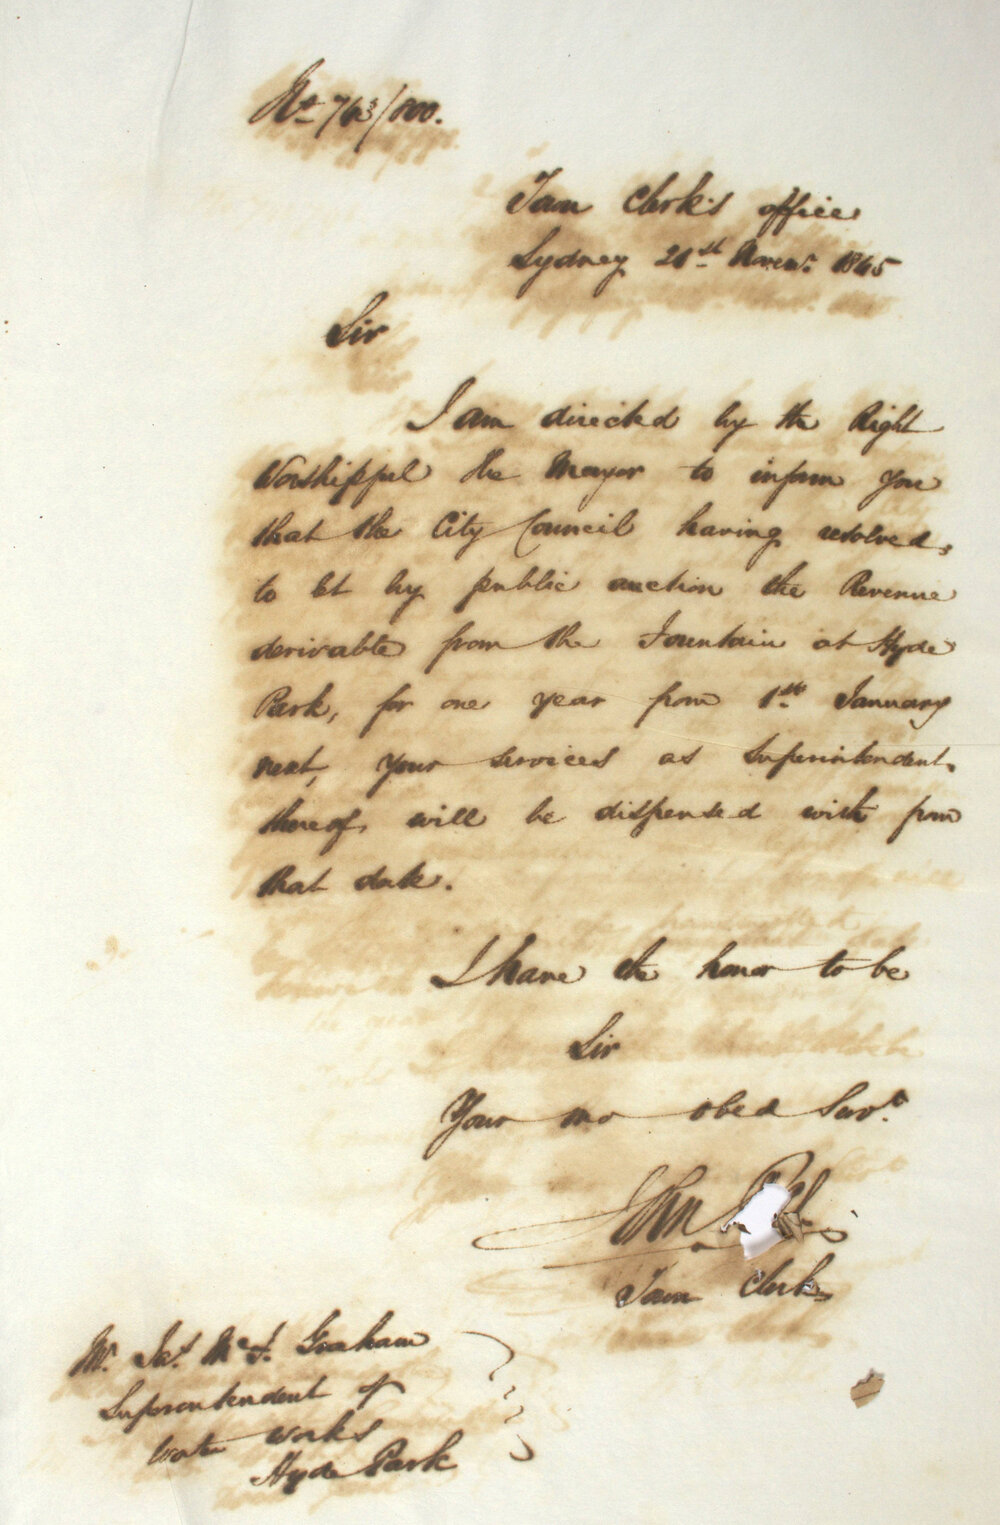 No 763/800.
Town Clerk's office
Sydney 21st Novemr. 1845
Sir
I am directed by the Right
Worshippul the Mayor to inform you
that the City Council having resolved,
to let by public auction the Revenue
derivable from the Fountain at Hyde
Park, for one year from 1st January
next, your services as Superintendent,
thereof, will be dispensed with from
that date.
I have the honor to be
Sir
Your mo obed Servt.
John
Town Clerk
Mr. Jas. McJ. Graham
Superintendent of
Water works
Hyde Park